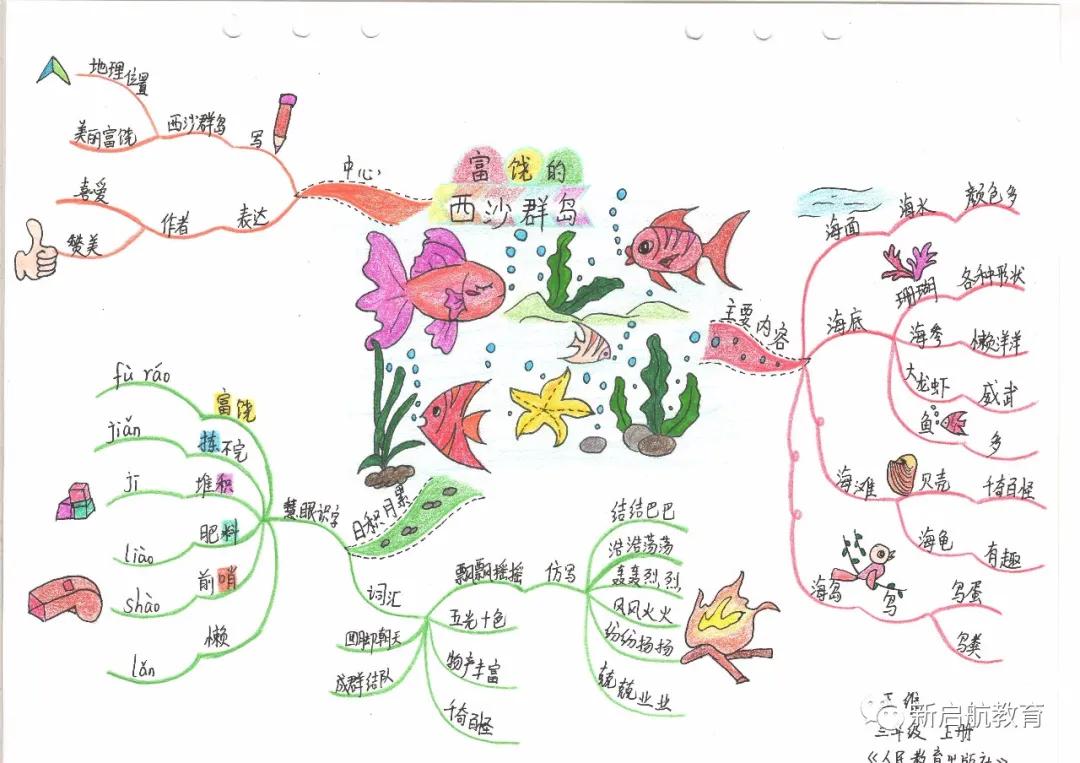 富饶的
西沙群岛
中心
写
西沙群岛
地理位置
美丽富饶
表达
作者
喜爱
赞美
主要内容
海面
海水
颜色多
海底
珊瑚
各种形状
海参
懒洋洋
大龙虾
威武
鱼
多
海滩
贝壳
千奇百怪
海龟
有趣
海岛
鸟
鸟蛋
鸟粪
日积月累
慧眼识字
富饶
fù ráo
拣不完
jiǎn
堆积
jī
肥料
liào
前哨
shào
懒
lǎn
词汇
飘飘摇摇
仿写
结结巴巴
浩浩荡荡
轰轰烈烈
风风火火
纷纷扬扬
兢兢业业
五光十色
物产丰富
千奇百怪
四脚朝天
成群结队
新启航教育
三年级 上册
《人民教育出版社》